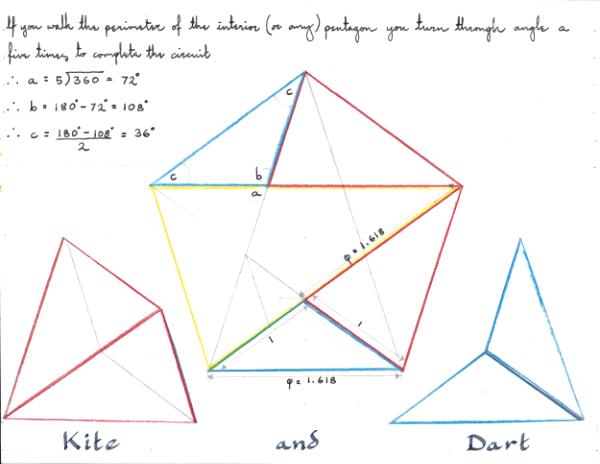 If you walk the perimeter of the interior (or any) pentagon you turn through angle a
five times to complete the circuit
∴ a = 5)360 = 72°
∴ b = 180° - 72° = 108°
∴ c = 180° - 108° / 2 = 36°
c
c
b
a
φ = 1.618
1
1
φ = 1.618
Kite and Dart